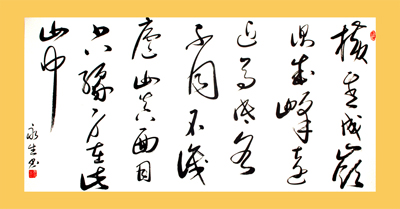 横看成嶺
側成峰遠
近高低各
不同不識
廬山真面目
只緣身在此
山中
永生书